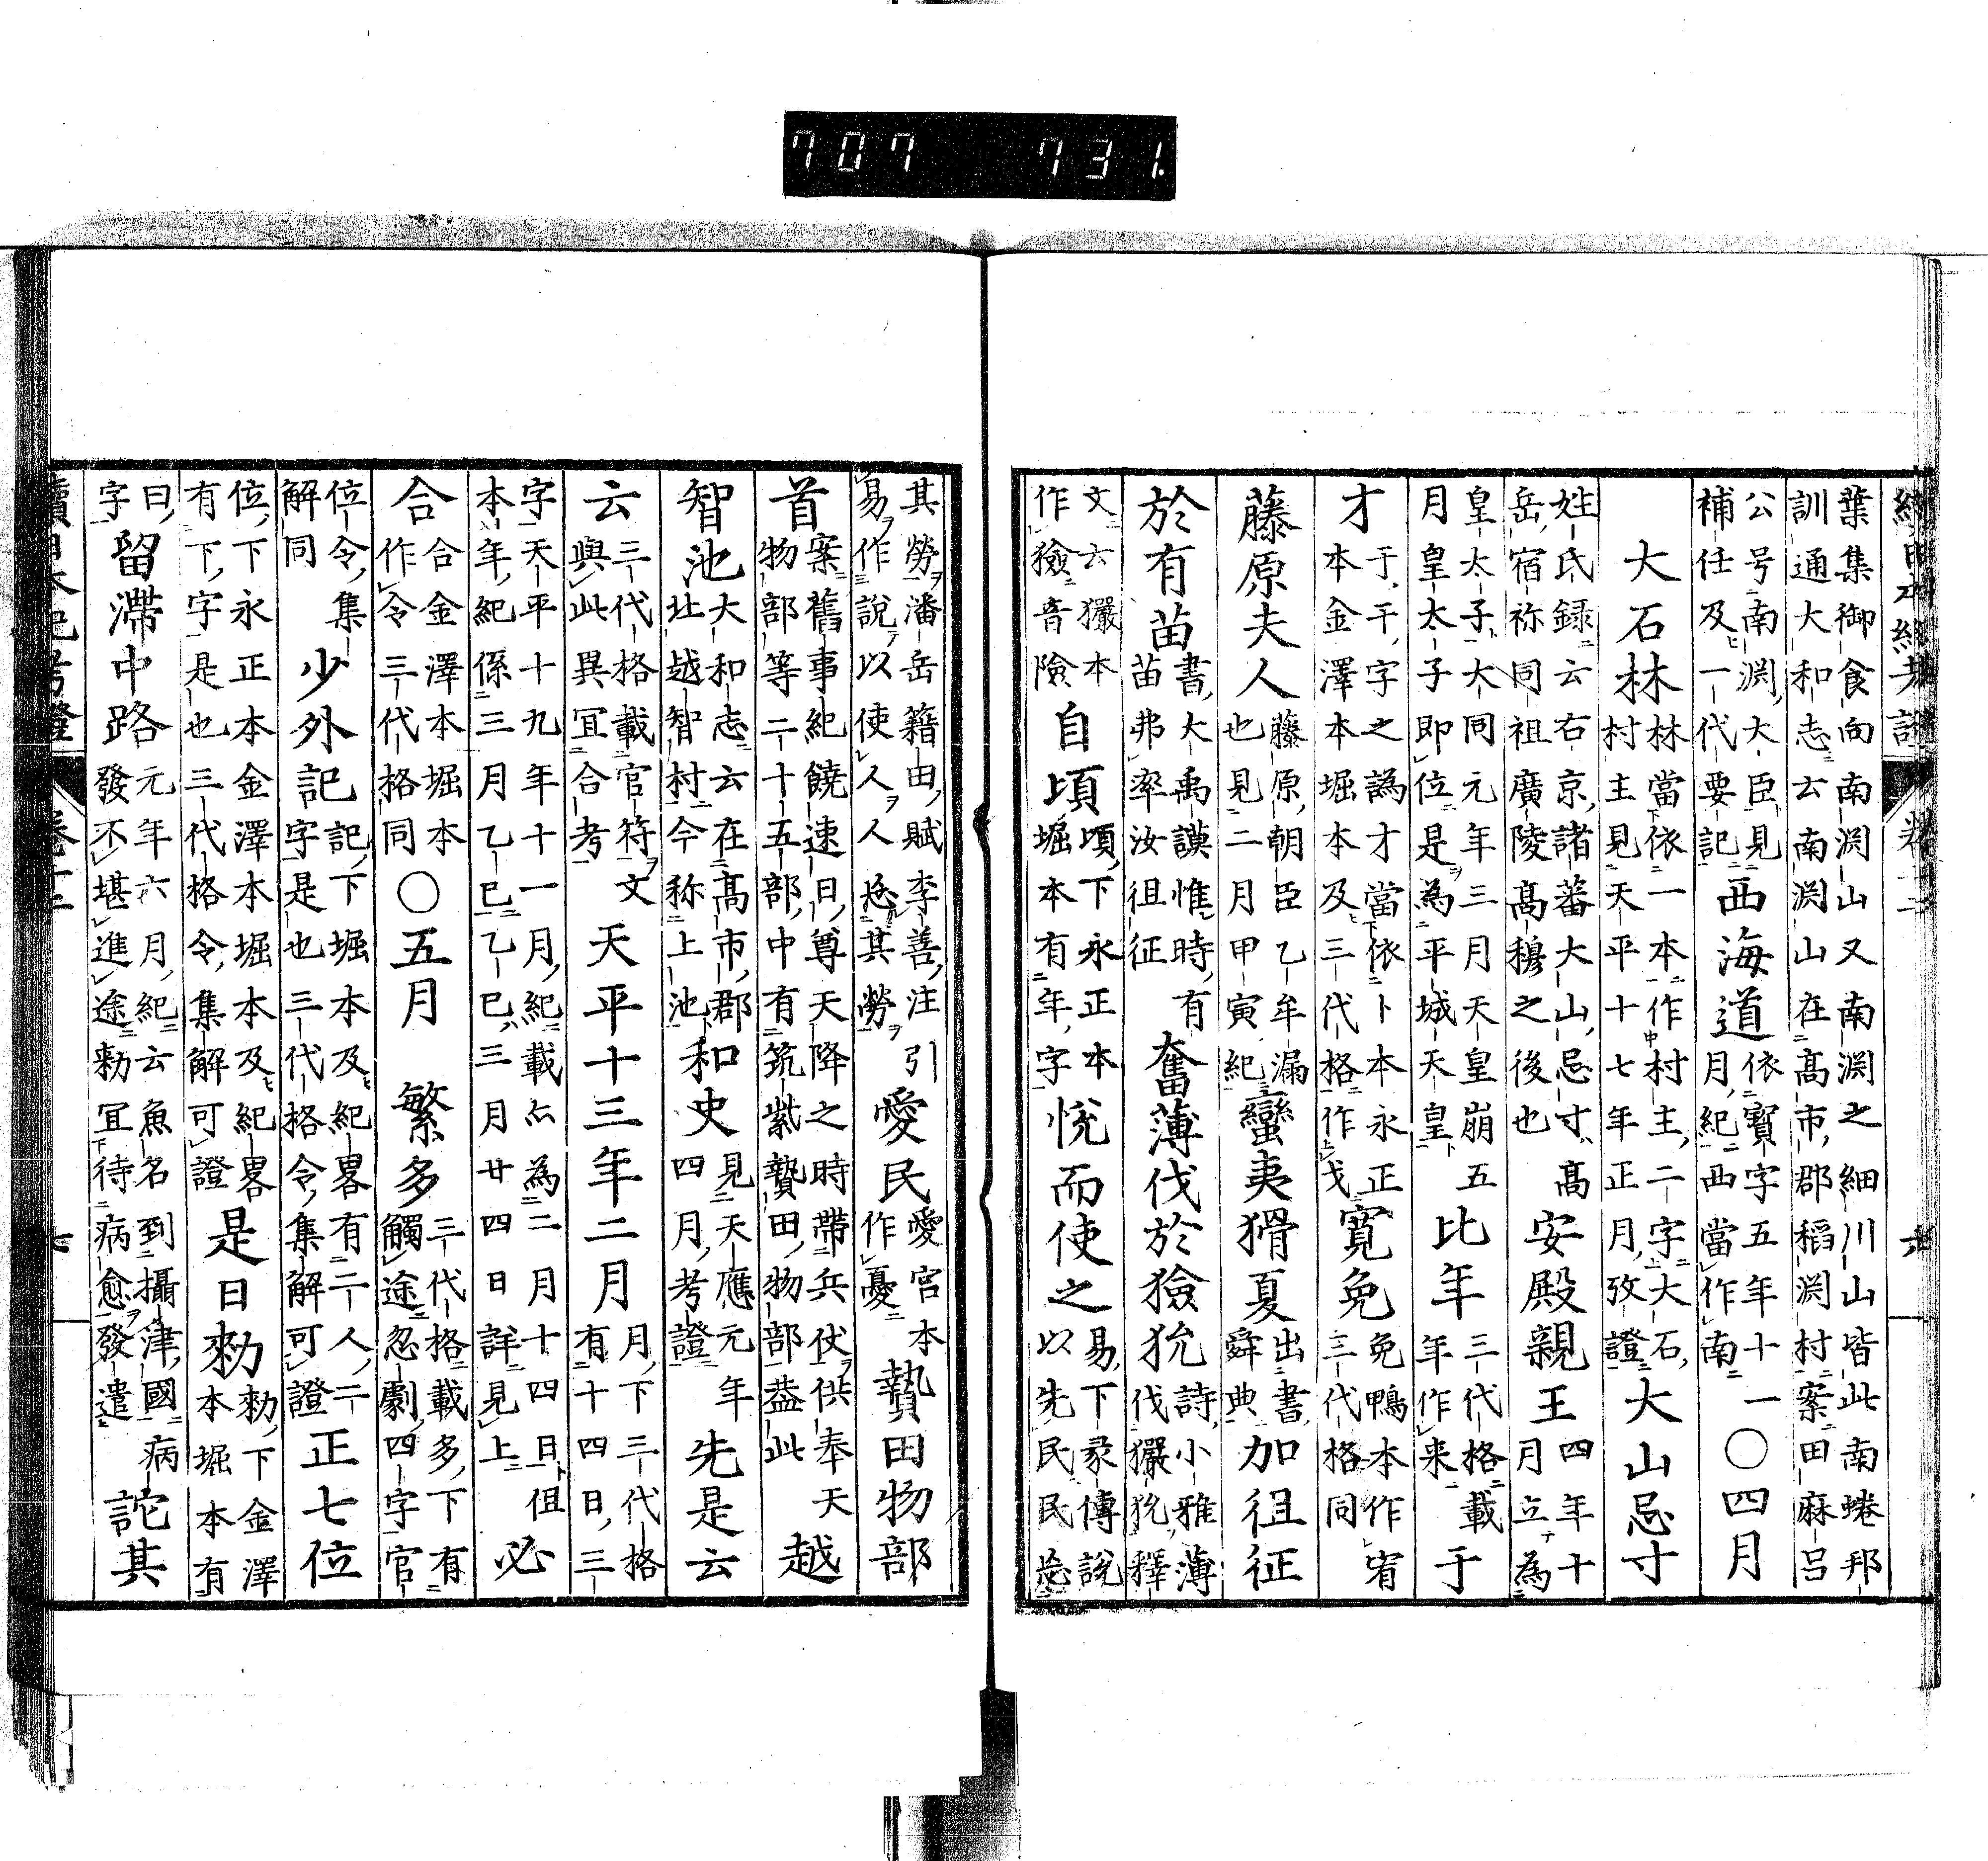 續日本紀考證 卷十二 六
葉集御食向南淵山又南淵之細川山皆此南蜷邦
訓通大和志云南淵山在高市郡稻淵村案田麻呂
公号南淵大臣見
補任及一代要記
西海道
依寶字五年十一
月紀西當作南
〇四月
大石林
林當依一本作村主二字大石
村主見天平十七年正月攷證
大山忌寸
姓氏録云右京諸蕃大山忌寸高
岳宿祢同祖廣陵高穆之後也
安殿親王
四年十
月立為
皇太子大同元年三月天皇崩五
月皇太子即位是為平城天皇
比年
三代格載
年作来
于
才
于干字之譌才當依卜本永正
本金澤本堀本及三代格作戈
寛免
免鴨本作宥
三代格同
藤原夫人
藤原朝臣乙牟漏
也見二月甲寅紀
蠻夷猾夏
出書
舜典
加徂征
於有苗
書大禹謨惟時有
苗弗率汝徂征
奮薄伐於獫狁
詩小雅薄
伐玁狁釋
文云玁本
作獫音險
自頃
頃下永正本
堀本有年字
悦而使之
易下彖傳說
以先民民忘
其勞潘岳籍田賦李善注引
易作說以使人人忘其勞
愛民
愛宮本
作憂
贄田物部
首
案舊事紀饒速日尊天降之時帶兵仗供奉天
物部等二十五部中有筑紫贄田物部葢此
越
智池
大和志云在高市郡
址越智村今称上池
和史
見天應元年
四月考證
先是云
云
三代格載官符文
與此異冝合考
天平十三年二月
月下三代格
有十四日三
字天平十九年十一月紀載亦為二月十四日徂
本年紀係三月乙巳乙巳三月廿四日詳見上
必
合
合金澤本堀本
作令三代格同
〇五月
繁多
三代格載多下有
觸途忽劇四字官
位令集
解同
少外記
記下堀本及紀畧有二人二
字是也三代格令集解可證
正七位
位下永正本金澤本堀本及紀畧
有下字是也三代格令集解可證
是日勑
勑下金澤
本堀本有
曰
字
留滯中路
元年六月紀云魚名到攝津國病
發不堪進途勑冝待病愈發遣
詑其
續日本紀考證 卷十二 七
707 731.